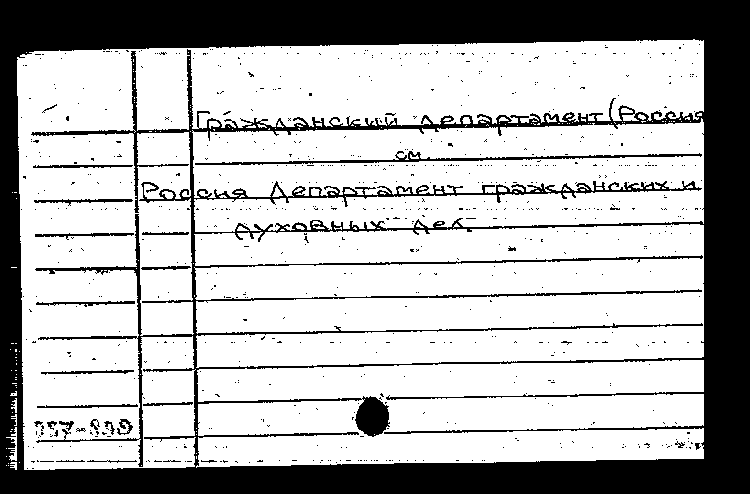 Гражданский департамент (Россия
см.
Россия Департамент гражданских и
духовных дел.